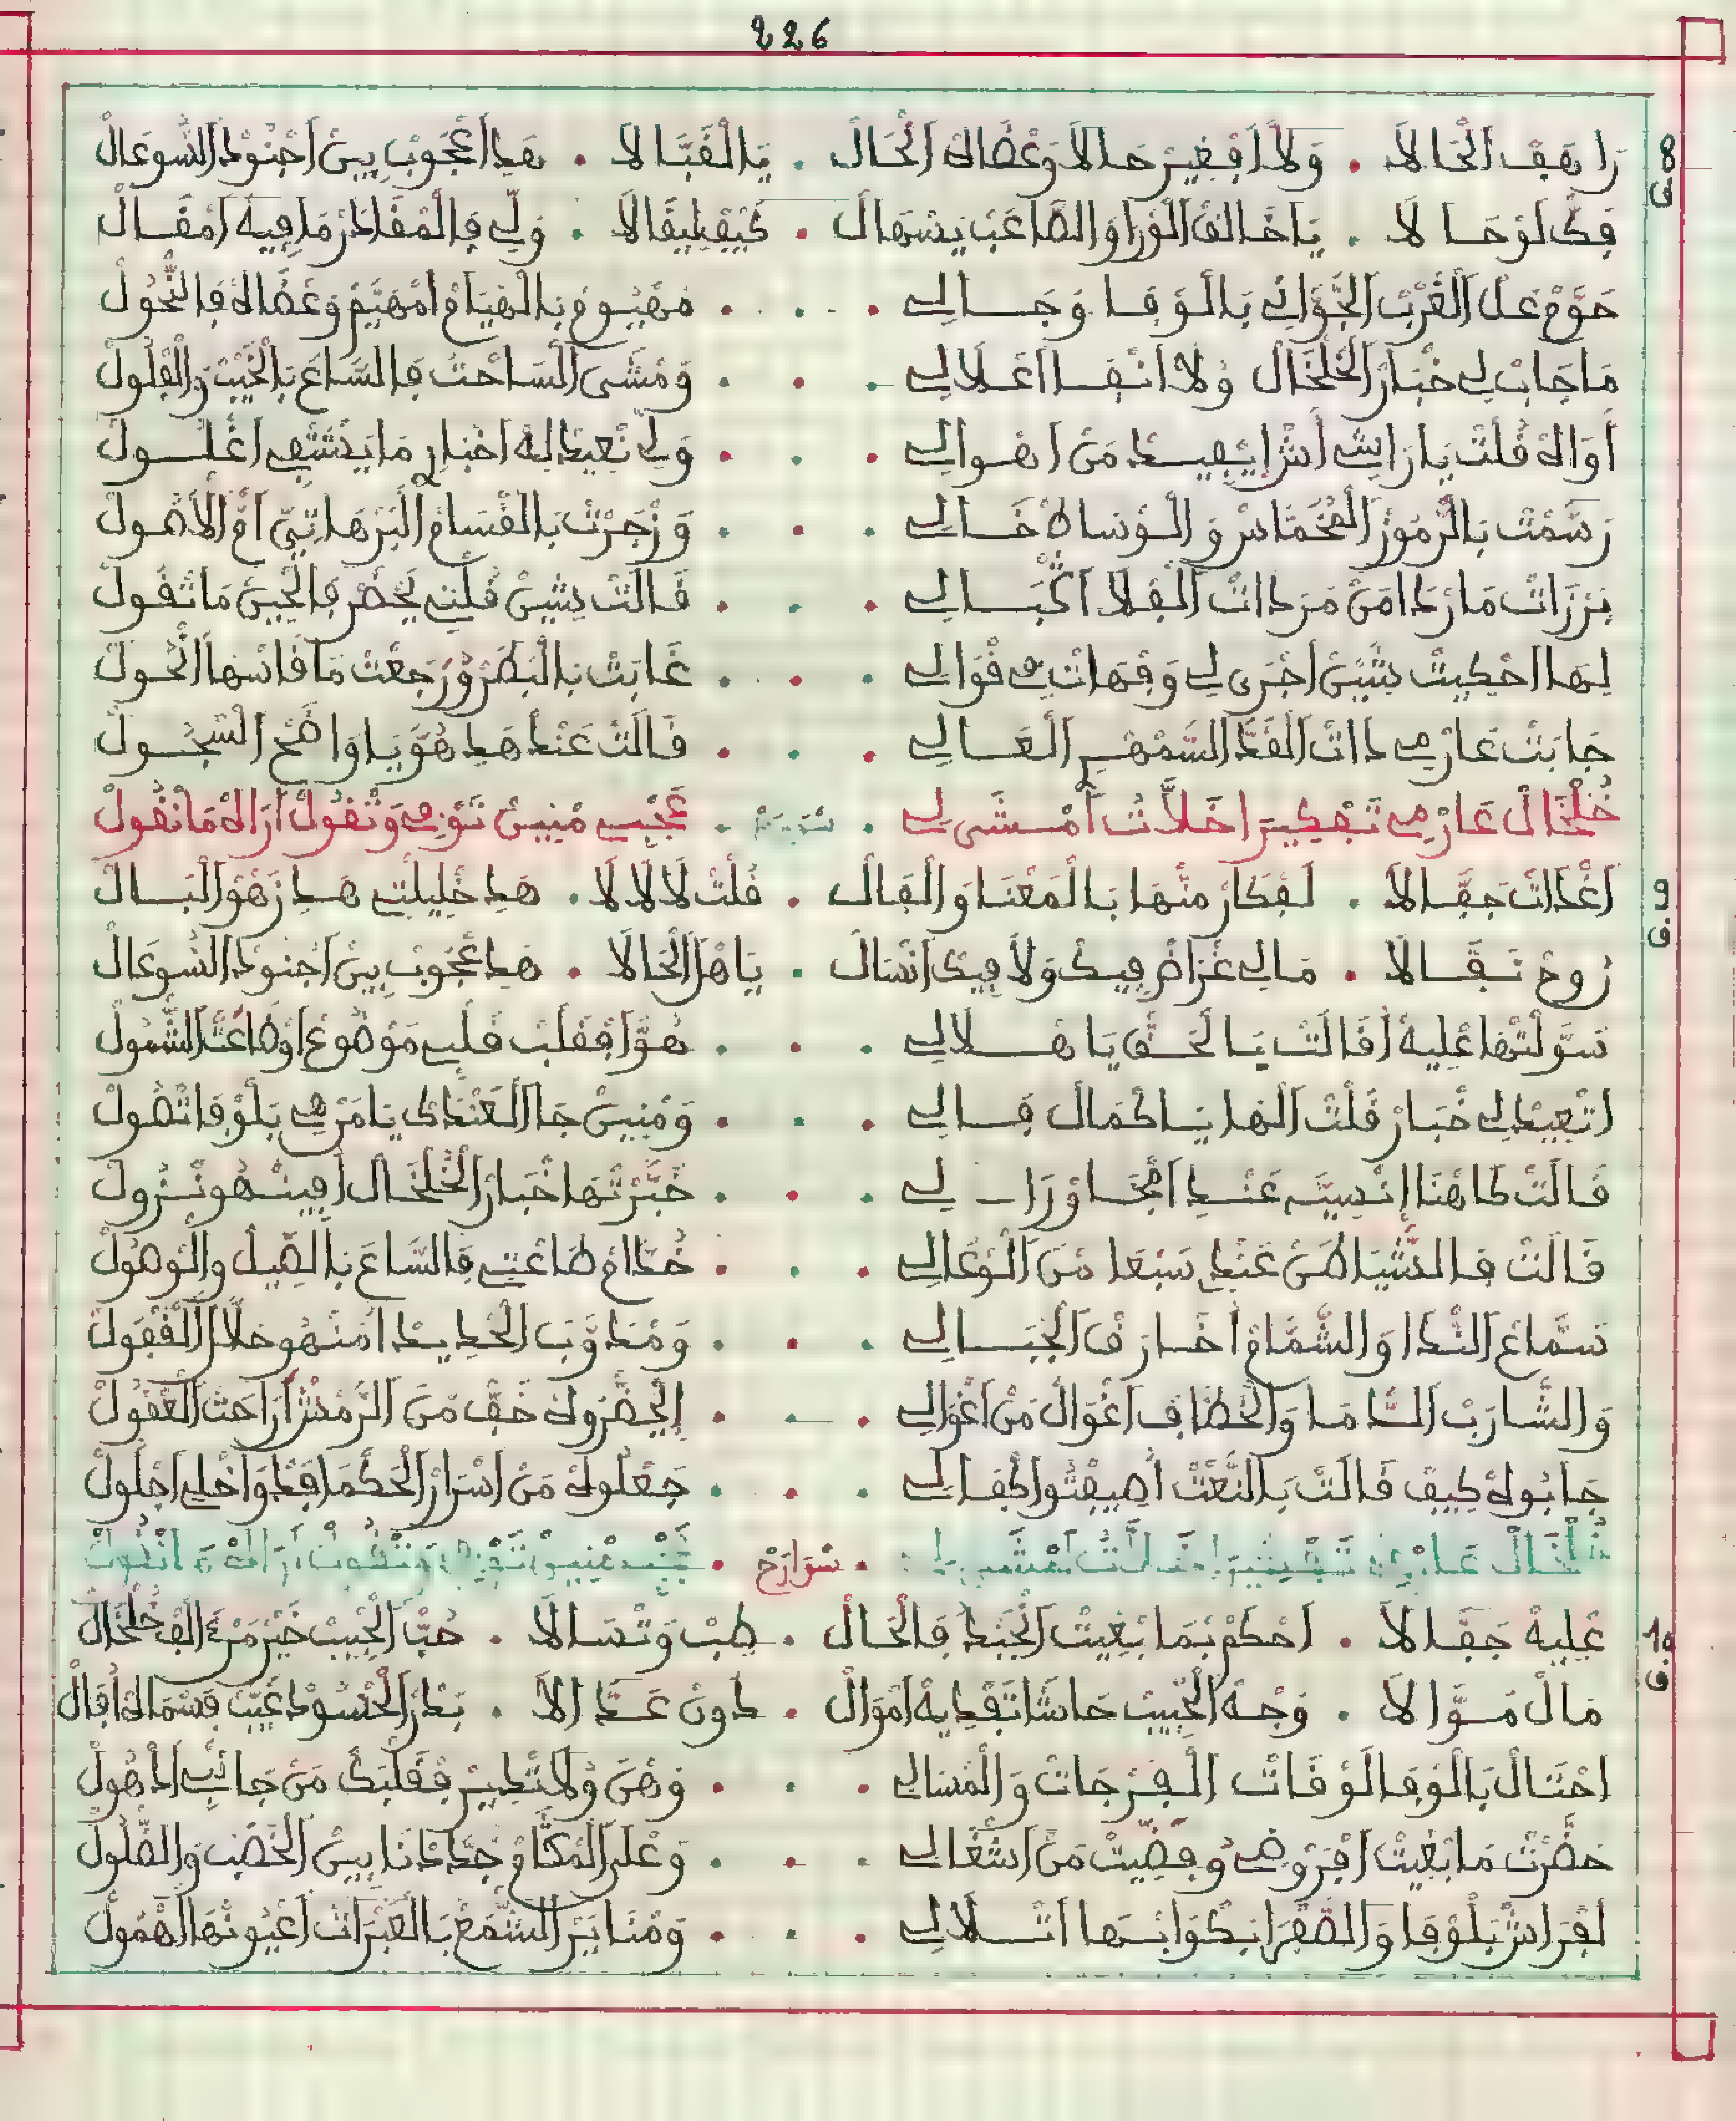 226
8 ف رَا هَدِ اَلْحَالَا . وَلَا اَفْغِيرْ حَالَا وَعْضَاكْ اَلْحَالْ . يَا لْقَبَّالَا . هَدِ اَعْجُوبْ بِينْ اَجْنُودْ اَلسُّوعَالْ
فِكْ لَوْحَا لَا . يَا خَالَقْ اَلْوَرَا وَالصَّاعَبْ يَسْهَالْ . كِيفْ لِيقَالَا . وَلِّي فَالْمْقَادَرْ مَا فِيهْ اَمْقَالْ
حَوَّمْ عَلْ اَلْقَرْبْ اَلْجُوَّانِي بَالْوْفَا وَجَالِي . . . مَهْيُومْ بَالْهْيَامْ اَمْهَيَّمْ وَعْضَاكْ فَالنّْحُولْ
مَا جَابْ لِي خْبَارْ اَلْخَلْخَالْ وْلَا اَنْفَا اَعْلَالِي . . . وَمْشَى اَلسَّاحْتْ فَالسَّاعَ بَالْخَيْبْ وَالْفْلُولْ
أَوَاكْ قُلْتْ يَا رَايِسْ اَشْ اِيفِيدْ مَنْ اَهْوَالِي . . . وَلِّي نْعِيدْ لِهْ اَخْبَارِي مَا يَشْفِي اَغْلُولْ
رَسَّمْتْ بَالرّْمُوزْ اَلْمْخَمَّاسْ وَالْوْسَاطْ خَالِي . . . وَزْجَرْتْ بَالْقْسَامْ اَلْبَرْهَاتِيَّ اَمّْ اَلْأَصُولْ
بَرْزَاتْ مَارْدَا مَنْ مَرْدَاتْ اَلْفْلَا اَكْبَالِي . . . قَالَتْ بَشِينْ قُلْتِي يَحْضَرْ فَالْحِينْ مَا تْقُولْ
لِهَا اَحْكِيتْ شِينْ اَجْرَى لِي وَفْهَاتْ فِي قْوَالِي . . . غَابَتْ بَالْبَطَرْ وْرَجْعَتْ مَا قَاسْهَا اَنْحُولْ
جَابَتْ عَارْمِي دَاتْ اَلْقَدّْ اَلسَّمْهَرِي اَلْعَالِي . . . قَالَتْ عَنْدْ هَدِ هُوَّ يَا وَاضَحْ اَلسّْجُولْ
خُلْخَالْ عَارْمِي تَفْكِيرَا خَلَّاتْ اَمْشَى لِي . . عَجْبِي مْنِينْ تَوْرِي وَتْقُولْ اَرَاكْ مَا نْقُولْ
9 ف اَغْدَاتْ جَفَّالَا . لَفْكَارْ مَنّْهَا بَالْمَعْنَا وَالْفَالْ . قُلْتْ لَا لَا لَا . هَدِ خْلِيلْتِي هَدِ زَهْوْ اَلْبَالْ
رُوحْ نَقَّالَا . مَا لِي غْرَاضْ فِيكْ وَلَا فِيكْ اَنْسَالْ . يَا هْلْ اَلْحَالَا . هَدِ عْجُوبْ بِينْ اَجْنُودْ اَلسُّوعَالْ
سَوَّلْتْهَا عْلِيهْ اَقَالَتْ بَالْحَقّْ يَا هْلَالِي . . . هُوَّ اَفْقَلْبْ قَلْبِي مَوْضُوعْ اَوْطَاعَتْ اَلشّْمُولْ
اَتْعِيدْ لِي خْبَارْ قُلْتْ اَلْهَا يَا كْمَالْ فَالِي . . . وَمْنِينْ جَا اَلْعَنْدَكْ يَا مَرْسْمِي بَلْوْفَا تْصُولْ
قَالَتْ كَاهْنَا اِنْسِيَّ عَنْدِ اَمْجَاوْرَا لِي . . . خَبَّرْتْهَا خْبَارْ اَلْخَلْخَالْ اَفِينْهُو نْزُولْ
قَالَتْ فَالشّْيَاطَنْ عَنْدِي سَبْعَا مْنْ اَلْوْعَالِي . . . خُدَّامْ طَاعْتِي فَالسَّاعَ بَالصِّيلْ وَالْوْصُولْ
سَمَّاعْ اَلنّْدَا وَالشَّمَّامْ اَخَارَقْ اَلْجْبَالِي . . . وَمْدَوَّبْ اَلْحْدِيدْ اَمَنْهُو حَلَّالْ اَلْقْفُولْ
وَالشَّارَبْ اَلدَّامَا وَالْخَطَّافْ اَغْوَالْ مَنْ اَغْوَالِي . . . اِيحَضْرُوكْ خَفّْ مَنْ اَلرَّمْشْ اَرَاحَتْ اَلْعْقُولْ
جَابُوكْ كِيفْ قَالَتْ بَالنَّعْتْ اَصِيفْتُو اَكْفَالِي . . . جَعْلُوكْ مَنْ اَسْرَارْ اَلْحَكْمَا فَدْوَاخْلِي اَجْلُولْ
خُلْخَالْ عَارْمِي تَفْكِيرَا خَلَّاتْ اَمْشَى لِي . سْوَارَحْ . عَجْبِي مْنِينْ تَوْرِي وَتْقُولْ اَرَاكْ مَا نْقُولْ
10 ف عْلِيهْ جَفَّالَا . اَحْكَمْ بْمَا بْغِيتْ اَلْجَنْدْ فَالْحَالْ . طِبْ وَتْسَالَا . حُبّْ اَلْحْبِيبْ خَيْرْ مَنْ اَلْفْ خَلْخَالْ
مَالْ مَوَّالَا . وَجْهْ اَلْحْبِيبْ حَاشَا تَفْدِيهْ اَمْوَالْ . دُونْ عَدَّالَا . بَدْرْ اَلْحْسُودْ غَيَّبْ فَسْمَاكْ اَفَالْ
اَحْتَالْ بَالْوْفَا لَوْقَاتْ اَلْفْرْجَاتْ وَالْمْسَالِي . . . وَهْنَ وْلَا تْدِيرْ فْقَلْبَكْ مَنْ جَانْبْ اَلْدْهُولْ
حَضَّرْتْ مَا بْغِيتْ اَفْرُوضِي وْفْضِيتْ مَنْ اَشْغَالِي . . . وَعْلَى اَلْمْكَامْ جَدَّدْنَا بِينْ اَلْخَصْبْ وَالطّْلُولْ
لَفْرَاشْ بَلْوْفَا وَالصَّفْرَا بْكْوَابْهَا اَتْلَالِي . . . وَمْنَايَرْ اَلشّْمَعْ بَالْعَبْرَاتْ اَعْيُونْهَا اَلْهْمُولْ